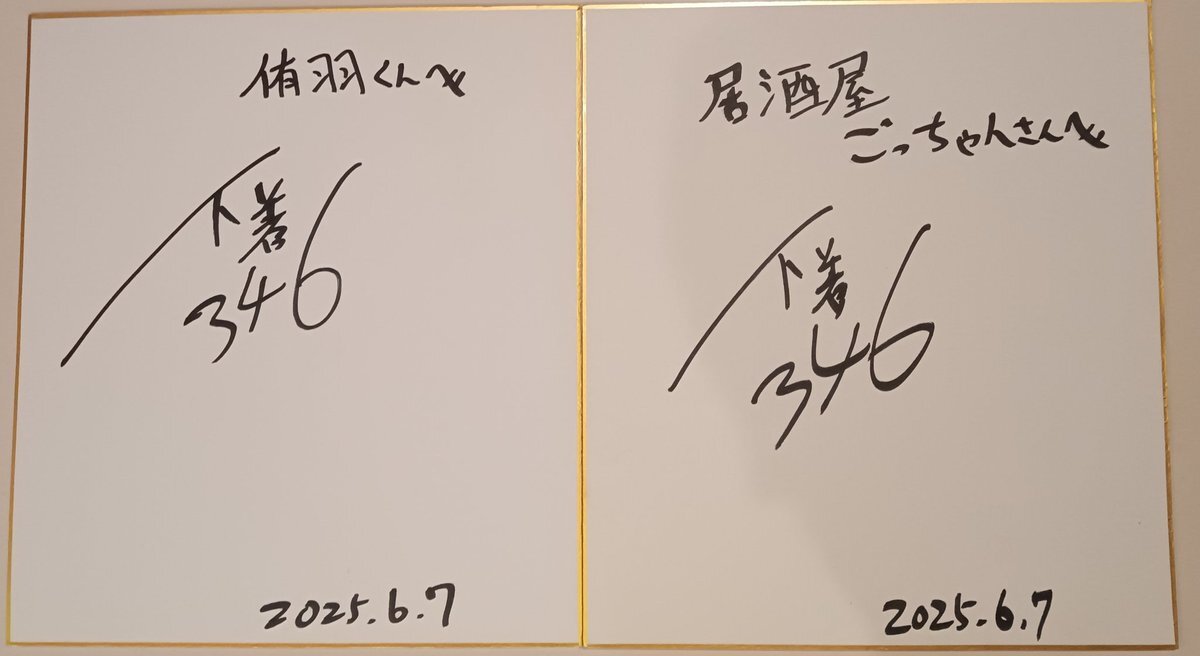 侑羽くんへ
下着
346
2025.6.7
居酒屋
ごっちゃんさんへ
下着
346
2025.6.7